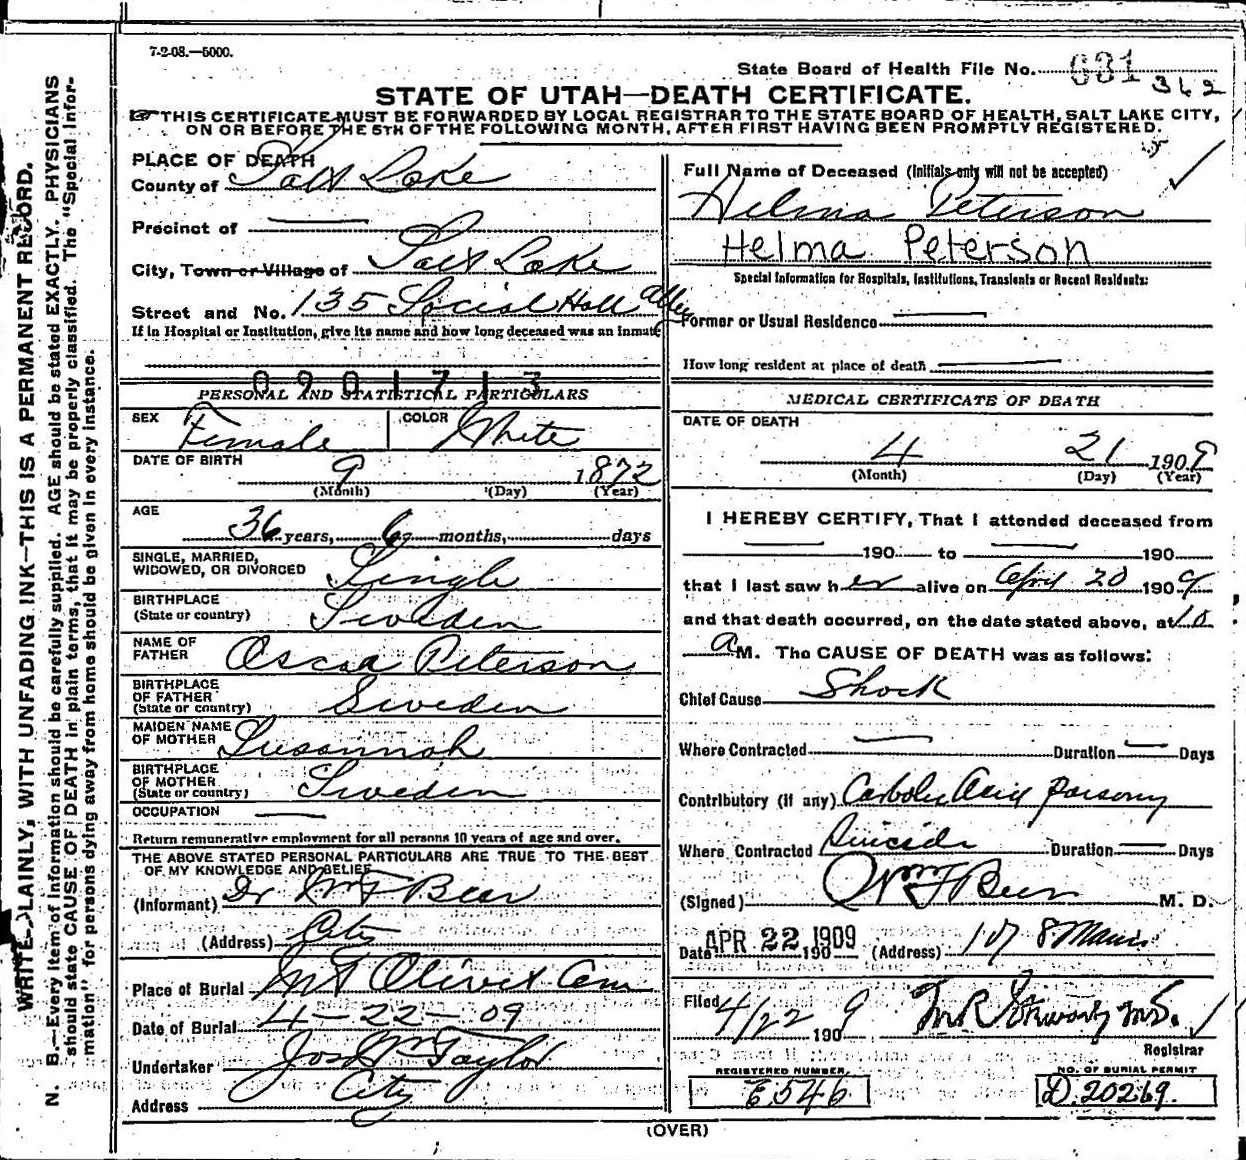 7-2-08.—5000.
State Board of Health File No. 631
362
STATE OF UTAH—DEATH CERTIFICATE.
THIS CERTIFICATE MUST BE FORWARDED BY LOCAL REGISTRAR TO THE STATE BOARD OF HEALTH, SALT LAKE CITY,
ON OR BEFORE THE 5TH OF THE FOLLOWING MONTH, AFTER FIRST HAVING BEEN PROMPTLY REGISTERED.
PLACE OF DEATH
County of Salt Lake
Precinct of —
City, Town or Village of Salt Lake
Street and No. 135 Social Hall Alley
If in Hospital or Institution, give its name and how long deceased was an inmate
0901713
PERSONAL AND STATISTICAL PARTICULARS
SEX Female COLOR White
DATE OF BIRTH 9 1872
(Month) (Day) (Year)
AGE
36 years, 6 months, days
SINGLE, MARRIED,
WIDOWED, OR DIVORCED Single
BIRTHPLACE
(State or country) Sweden
NAME OF
FATHER Oscar Peterson
BIRTHPLACE
OF FATHER
(State or country) Sweden
MAIDEN NAME
OF MOTHER Susannah
BIRTHPLACE
OF MOTHER
(State or country) Sweden
OCCUPATION —
Return remunerative employment for all persons 10 years of age and over.
THE ABOVE STATED PERSONAL PARTICULARS ARE TRUE TO THE BEST
OF MY KNOWLEDGE AND BELIEF
(Informant) Dr Wm F Beer
(Address) City
Place of Burial Mt Olivet Cem
Date of Burial 4-22-09
Undertaker Jos Wm Taylor
Address City
Full Name of Deceased (Initials only will not be accepted)
Helma Peterson
Helma Peterson
Special Information for Hospitals, Institutions, Transients or Recent Residents:
Former or Usual Residence —
How long resident at place of death —
MEDICAL CERTIFICATE OF DEATH
DATE OF DEATH
4 21 1909
(Month) (Day) (Year)
I HEREBY CERTIFY, That I attended deceased from
— 190 to — 190
that I last saw her alive on April 20 1909
and that death occurred, on the date stated above, at 10
A M. The CAUSE OF DEATH was as follows:
Chief Cause Shock
Where Contracted — Duration — Days
Contributory (if any) Carbolic Acid
Where Contracted Suicide Duration — Days
(Signed) Wm F Beer M. D.
Date APR 22 1909 190 (Address) 107 S Main
Filed 4/22 1909 M.D.
Registrar
REGISTERED NUMBER. E546
NO. OF BURIAL PERMIT D.20269.
(OVER)
WRITE PLAINLY, WITH UNFADING INK—THIS IS A PERMANENT RECORD.
N. B.—Every item of information should be carefully supplied. AGE should be stated EXACTLY. PHYSICIANS
should state CAUSE OF DEATH in plain terms, that it may be properly classified. The "Special Infor-
mation" for persons dying away from home should be given in every instance.